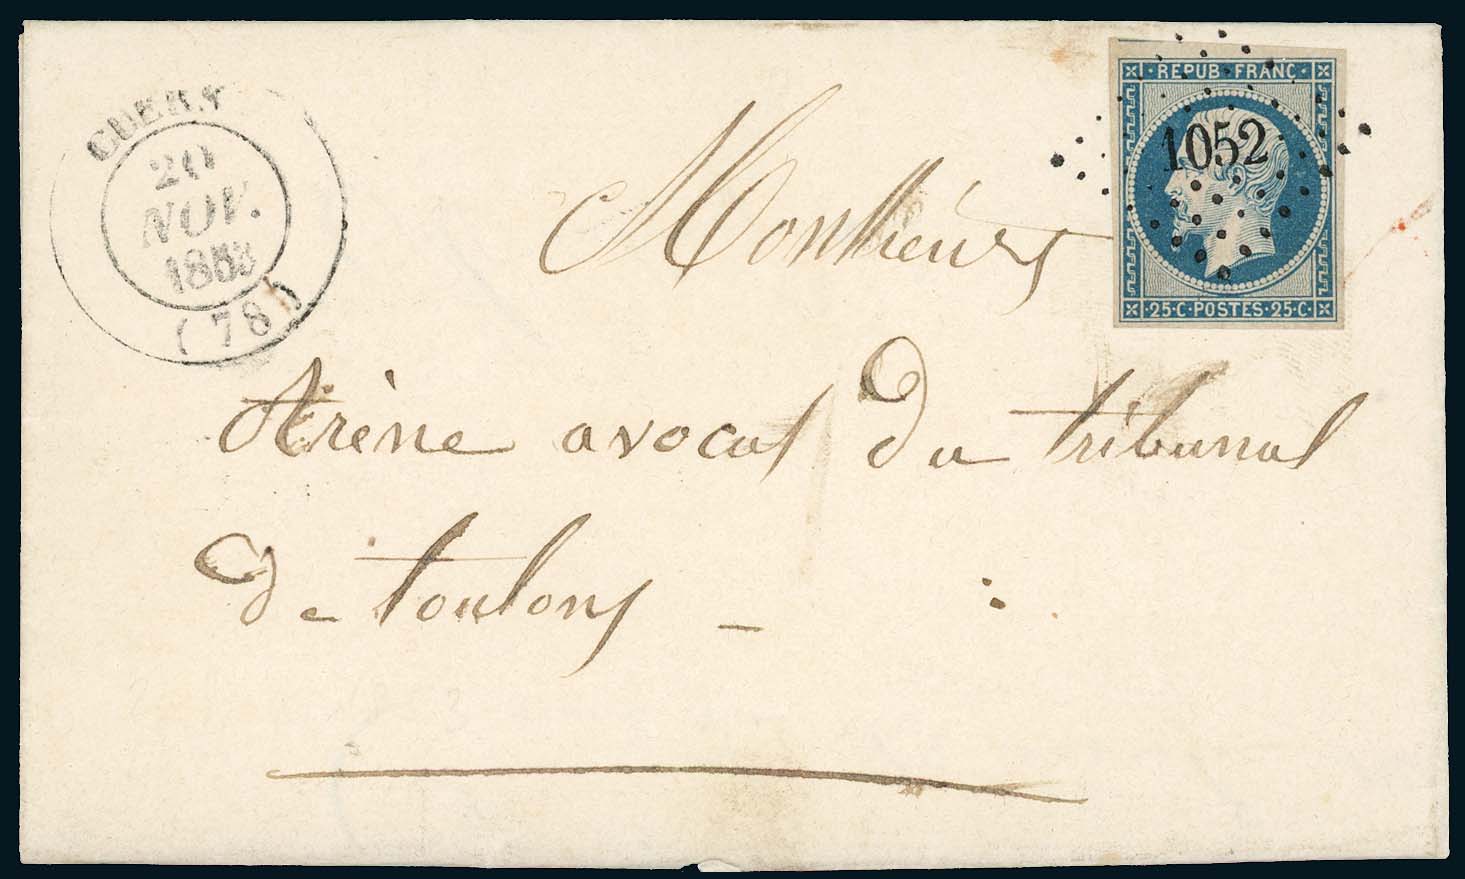 CUERS
20
NOV.
1853
(78)
REPUB·FRANC
1052
·25·C·POSTES·25·C·
Monsieur
Arène avocat du tribunal
De toulon